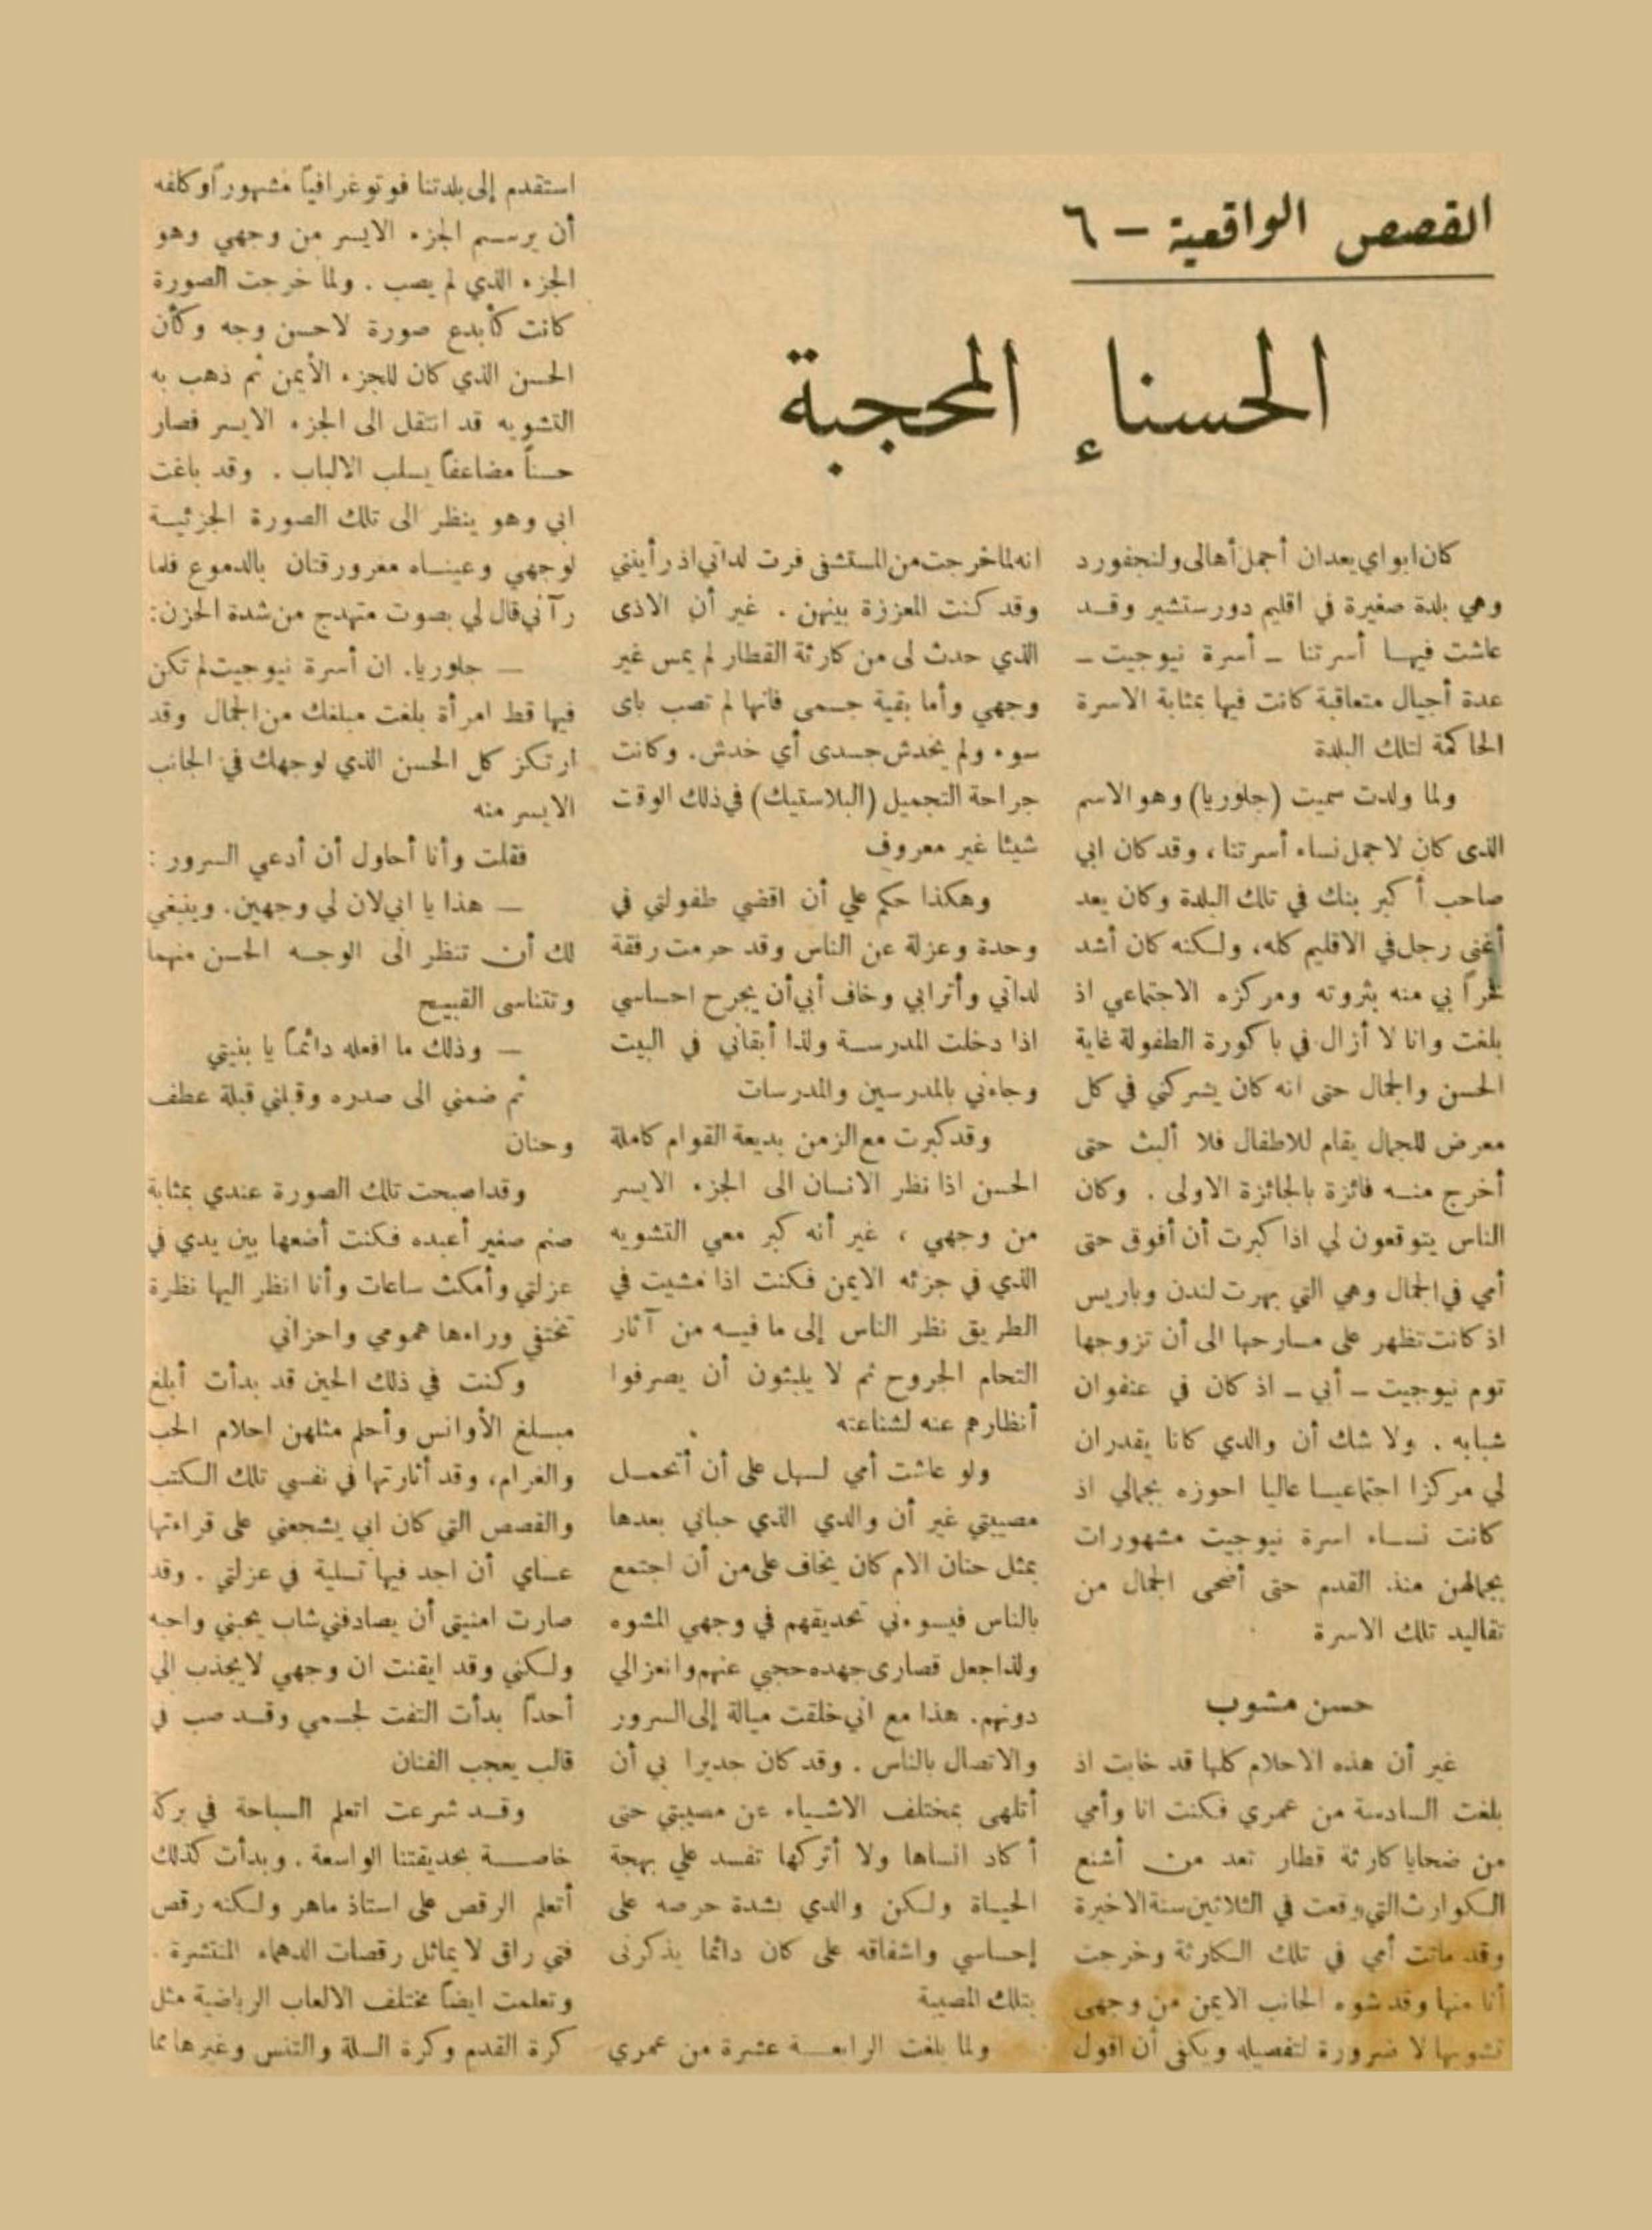 القصص الواقعية – ٦
الحسناء المحجبة
كان ابواي يعدان أجمل أهالى ولنجفورد
وهي بلدة صغيرة في اقليم دورستشير وقد
عاشت فيها أسرتنا – أسرة نيوجيت –
عدة أجيال متعاقبة كانت فيها بمثابة الاسرة
الحاكمة لتلك البلدة
ولما ولدت سميت (جلوريا) وهو الاسم
الذى كان لاجمل نساء أسرتنا، وقد كان ابي
صاحب أكبر بنك في تلك البلدة وكان يعد
أغنى رجل في الاقليم كله، ولكنه كان أشد
فخراً بي منه بثروته ومركزه الاجتماعي اذ
بلغت وانا لا أزال في باكورة الطفولة غاية
الحسن والجمال حتى انه كان يشركني في كل
معرض للجمال يقام للاطفال فلا ألبث حتى
أخرج منه فائزة بالجائزة الاولى . وكان
الناس يتوقعون لي اذا كبرت أن أفوق حتى
أمي في الجمال وهي التي بهرت لندن وباريس
اذ كانت تظهر على مسارحها الى أن تزوجها
توم نيوجيت – أبي – اذ كان في عنفوان
شبابه . ولا شك أن والدي كانا يقدران
لي مركزا اجتماعيا عاليا احوزه بجمالي اذ
كانت نساء اسرة نيوجيت مشهورات
بجمالهن منذ القدم حتى أضحى الجمال من
تقاليد تلك الاسرة
حسن مشوب
غير أن هذه الاحلام كلها قد خابت اذ
بلغت السادسة من عمري فكنت انا وأمي
من ضحايا كارثة قطار تعد من أشنع
الكوارث التي وقعت في الثلاثين سنة الاخيرة
وقد ماتت أمي في تلك الكارثة وخرجت
أنا منها وقد شوه الجانب الايمن من وجهى
تشويها لا ضرورة لتفصيله ويكفى أن اقول
انه لما خرجت من المستشفى فرت لداتي اذ رأينني
وقد كنت المعززة بينهن . غير أن الاذى
الذي حدث لى من كارثة القطار لم يمس غير
وجهي وأما بقية جسمى فانها لم تصب باى
سوء ولم يخدش جسدى أي خدش. وكانت
جراحة التجميل (البلاستيك) في ذلك الوقت
شيئا غير معروف
وهكذا حكم علي أن اقضي طفولتي في
وحدة وعزلة عن الناس وقد حرمت رفقة
لداتي وأترابي وخاف أبي أن يجرح احساسي
اذا دخلت المدرسة ولذا أبقاني في البيت
وجاءني بالمدرسين والمدرسات
وقد كبرت مع الزمن بديعة القوام كاملة
الحسن اذا نظر الانسان الى الجزء الايسر
من وجهي ، غير أنه كبر معي التشويه
الذي في جزئه الايمن فكنت اذا مشيت في
الطريق نظر الناس إلى ما فيه من آثار
التحام الجروح ثم لا يلبثون أن يصرفوا
أنظارهم عنه لشناعته
ولو عاشت أمي لسهل على أن أتحمل
مصيبتي غير أن والدي الذي حباني بعدها
بمثل حنان الام كان يخاف على من أن اجتمع
بالناس فيسوءني تحديقهم في وجهي المشوه
ولذا جعل قصارى جهده حجبي عنهم وانعزالي
دونهم. هذا مع اني خلقت ميالة إلى السرور
والاتصال بالناس . وقد كان جديرا بي أن
أتلهى بمختلف الاشياء عن مصيبتي حتى
أكاد انساها ولا أتركها تفسد علي بهجة
الحياة ولكن والدي بشدة حرصه على
إحساسي واشفاقه على كان دائما يذكرنى
بتلك المصيبة
ولما بلغت الرابعة عشرة من عمري
استقدم إلى بلدتنا فوتوغرافياً مشهوراً وكلفه
أن يرسم الجزء الايسر من وجهي وهو
الجزء الذي لم يصب . ولما خرجت الصورة
كانت كأبدع صورة لاحسن وجه وكأن
الحسن الذي كان للجزء الأيمن ثم ذهب به
التشويه قد انتقل الى الجزء الايسر فصار
حسناً مضاعفاً يسلب الالباب . وقد باغت
ابي وهو ينظر الى تلك الصورة الجزئية
لوجهي وعيناه مغرورقتان بالدموع فلما
رآني قال لي بصوت متهدج من شدة الحزن:
– جلوريا. ان أسرة نيوجيت لم تكن
فيها قط امرأة بلغت مبلغك من الجمال وقد
ارتكز كل الحسن الذي لوجهك في الجانب
الايسر منه
فقلت وأنا أحاول أن أدعي السرور :
– هذا يا ابي لان لي وجهين. وينبغي
لك أن تنظر الى الوجه الحسن منهما
وتتناسى القبيح
– وذلك ما افعله دائماً يا بنيتي
ثم ضمني الى صدره وقبلني قبلة عطف
وحنان
وقد اصبحت تلك الصورة عندي بمثابة
صنم صغير أعبده فكنت أضعها بين يدي في
عزلتي وأمكث ساعات وأنا انظر اليها نظرة
تختفي وراءها همومي واحزاني
وكنت في ذلك الحين قد بدأت أبلغ
مبلغ الأوانس وأحلم مثلهن احلام الحب
والغرام، وقد أثارتها في نفسي تلك الكتب
والقصص التي كان ابي يشجعني على قراءتها
عساي أن اجد فيها تسلية في عزلتي . وقد
صارت امنيتى أن يصادفني شاب يحبني واحبه
ولكني وقد ايقنت ان وجهي لا يجذب الي
أحداً بدأت التفت لجسمي وقد صب في
قالب يعجب الفنان
وقد شرعت اتعلم السباحة في بركة
خاصة بحديقتنا الواسعة . وبدأت كذلك
أتعلم الرقص على استاذ ماهر ولكنه رقص
فني راق لا يماثل رقصات الدهماء المنتشرة .
وتعلمت ايضاً مختلف الالعاب الرياضية مثل
كرة القدم وكرة السلة والتنس وغيرها مما